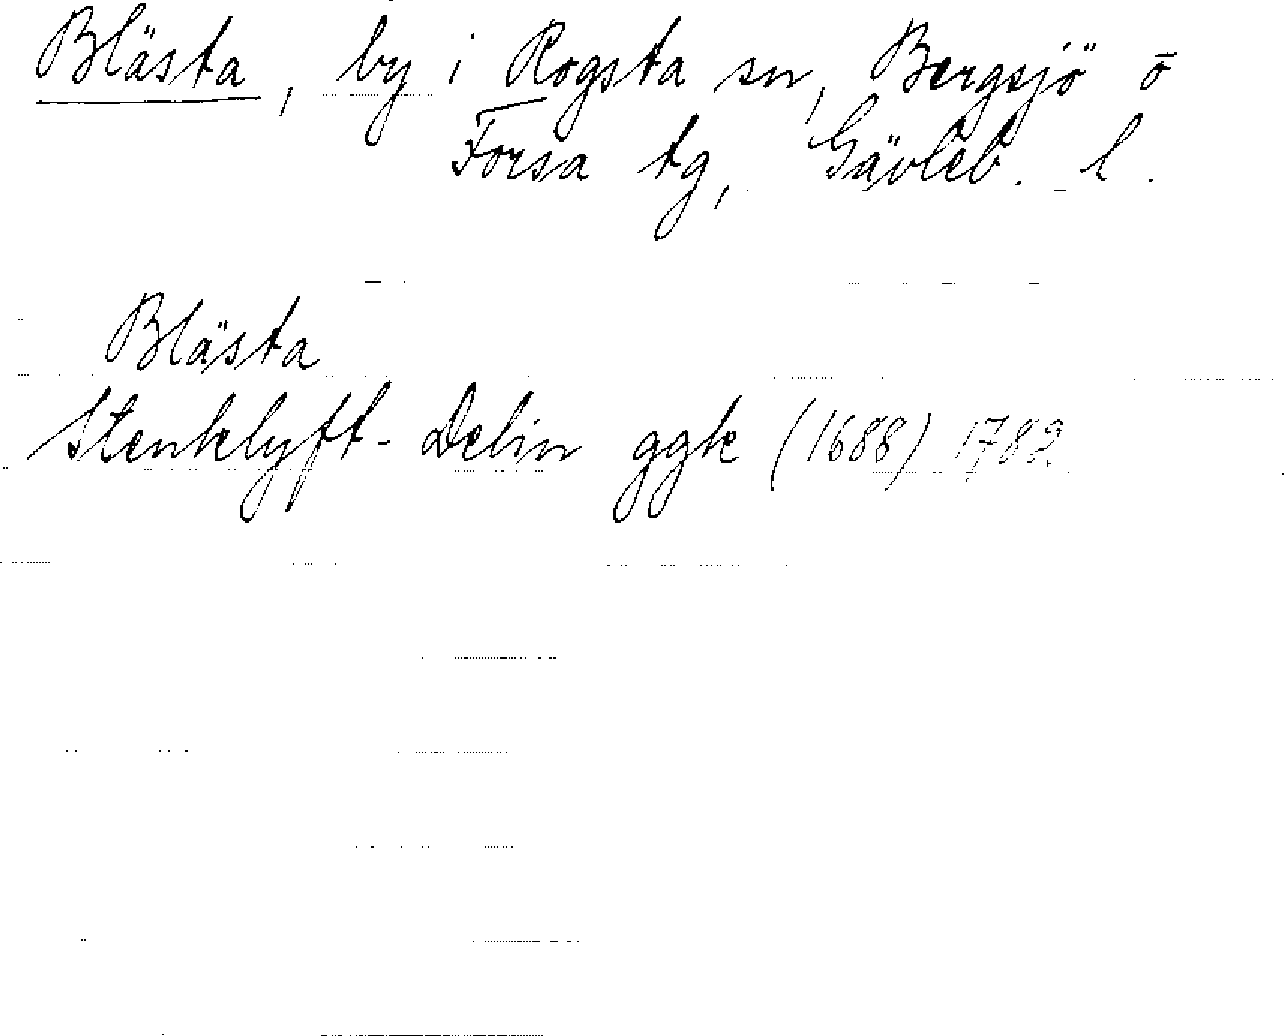 Blästa, by i Rogsta sn, Bergsjö o
Forsa tg, Gävleb. l.
Blästa
Stenklyft- Delin ggk (1688) 1782